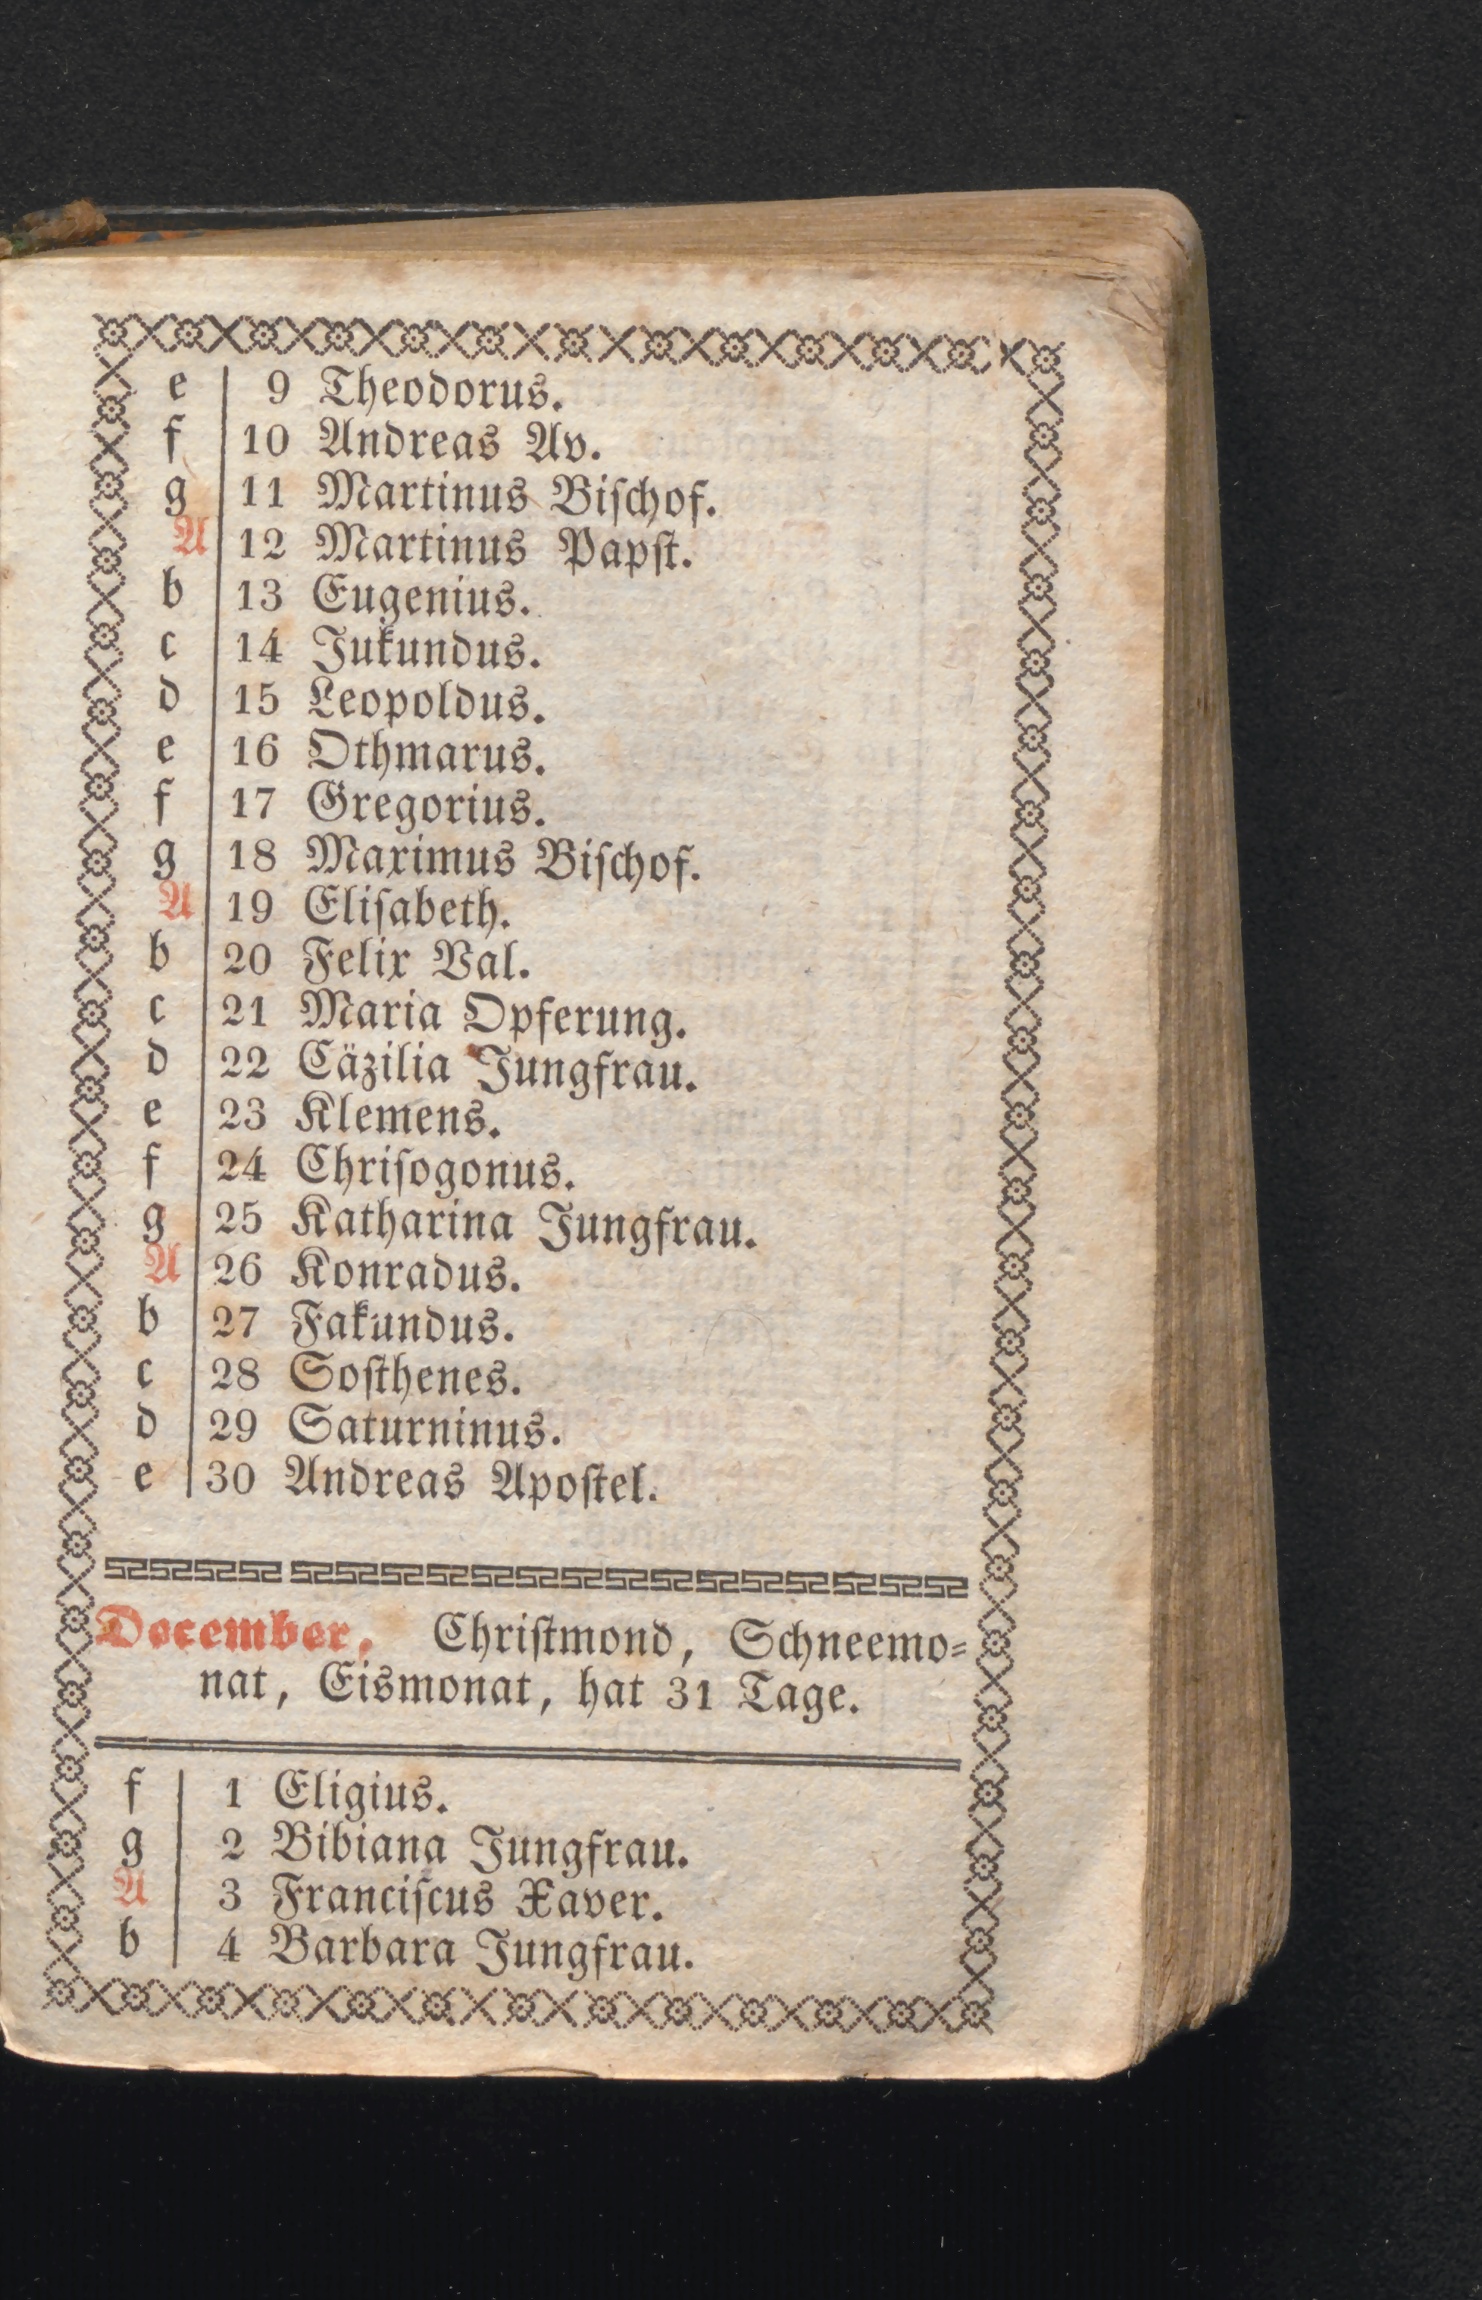 e 9 Theodorus.
f 10 Andreas Av.
g 11 Martinus Biſchof.
A 12 Martinus Papſt.
b 13 Eugenius.
c 14 Jukundus.
d 15 Leopoldus.
e 16 Othmarus.
f 17 Gregorius.
g 18 Maximus Biſchof.
A 19 Eliſabeth.
b 20 Felix Val.
c 21 Maria Opferung.
d 22 Cäzilia Jungfrau.
e 23 Klemens.
f 24 Chriſogonus.
g 25 Katharina Jungfrau.
A 26 Konradus.
b 27 Fakundus.
c 28 Soſthenes.
d 29 Saturninus.
e 30 Andreas Apoſtel.
December, Chriſtmond, Schneemo-
nat, Eismonat, hat 31 Tage.
f 1 Eligius.
g 2 Bibiana Jungfrau.
A 3 Franciſcus Xaver.
b 4 Barbara Jungfrau.